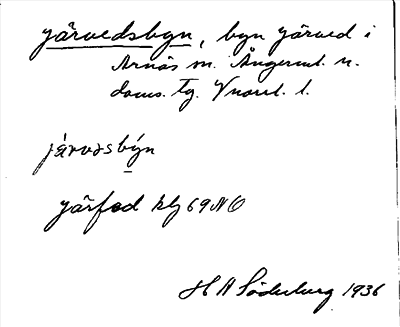 Järvedsbyn, byn Järved i
Arnäs sn. Ångerml. n.
doms. Tg. Vnorrl. l.
järvasbýn
Järfed kbl 69 NO
H A Söderberg 1936